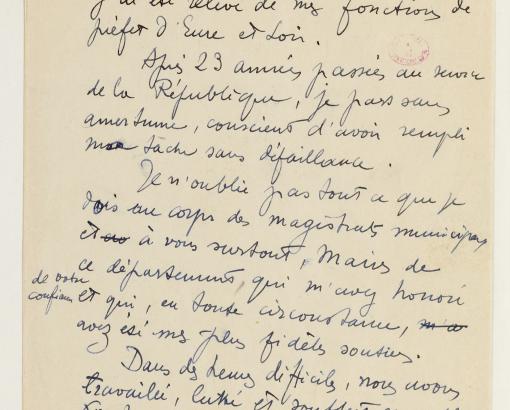 j'ai été relevé de mes fonctions de
préfet d'Eure et Loir.
Après 23 années passées au service
de la République, je pars sans
amertume, conscient d'avoir rempli
ma tâche sans défaillance.
Je n'oublie pas tout ce que je
dois au corps des magistrats municipaux
et à vous surtout, Maires de
ce département, qui m'avez honoré
de votre
confiance
et qui, en toute circonstance,
avez été mes plus fidèles soutiens.
Dans des heures difficiles, nous avons
travaillé, lutté et souffert